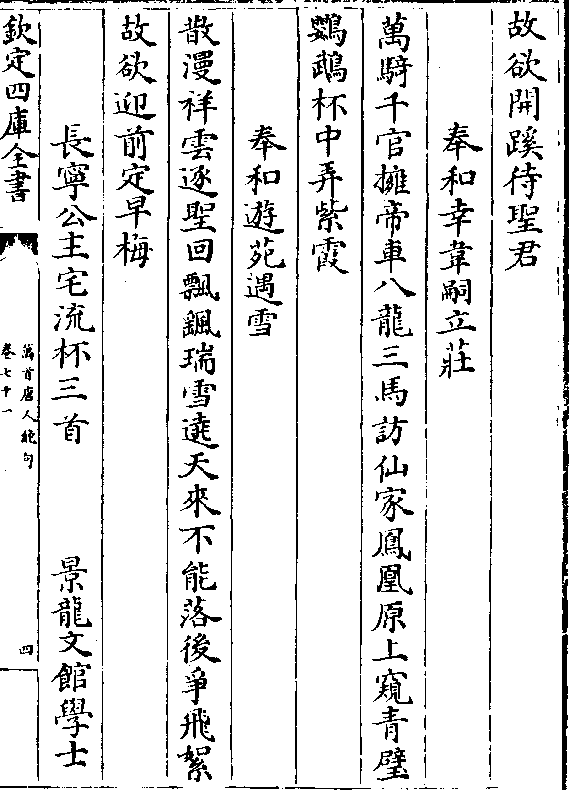 故欲開蹊待聖君
奉和幸韋嗣立莊
萬騎千官擁帝車八龍三馬訪仙家鳳凰原上窺青璧
鸚鵡杯中弄紫霞
奉和遊苑遇雪
散漫祥雲逐聖回飄颻瑞雪遶天來不能落後爭飛絮
故欲迎前定早梅
長寧公主宅流杯三首 景龍文館學士
欽定四庫全書
萬首唐人絶句
卷七十一
四